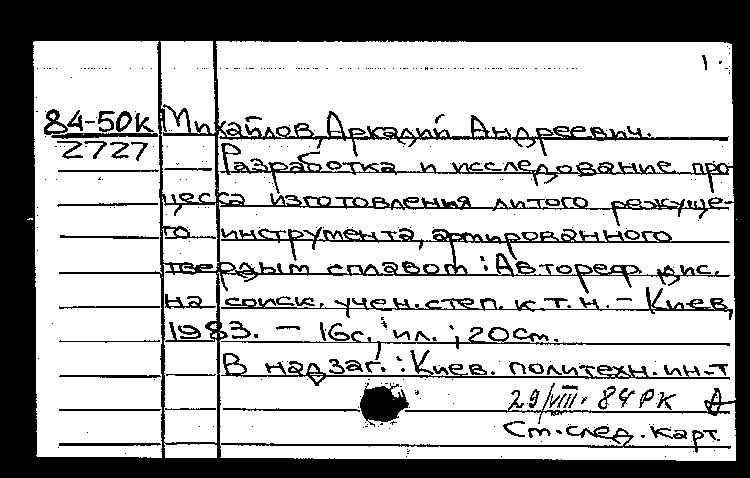 1.
84-50к Михайлов, Аркадий Андреевич.
2727 Разработка и исследование про
цесса изготовления литого режуще-
го инструмента, армированного
твердым сплавом : Автореф. дис.
на соиск. учен. степ. к. т. н. - Киев,
1983. - 16с., ил. ; 20см.
В надзаг. : Киев. политехн. ин-т
29/VIII. 84 РК
См. след. карт.